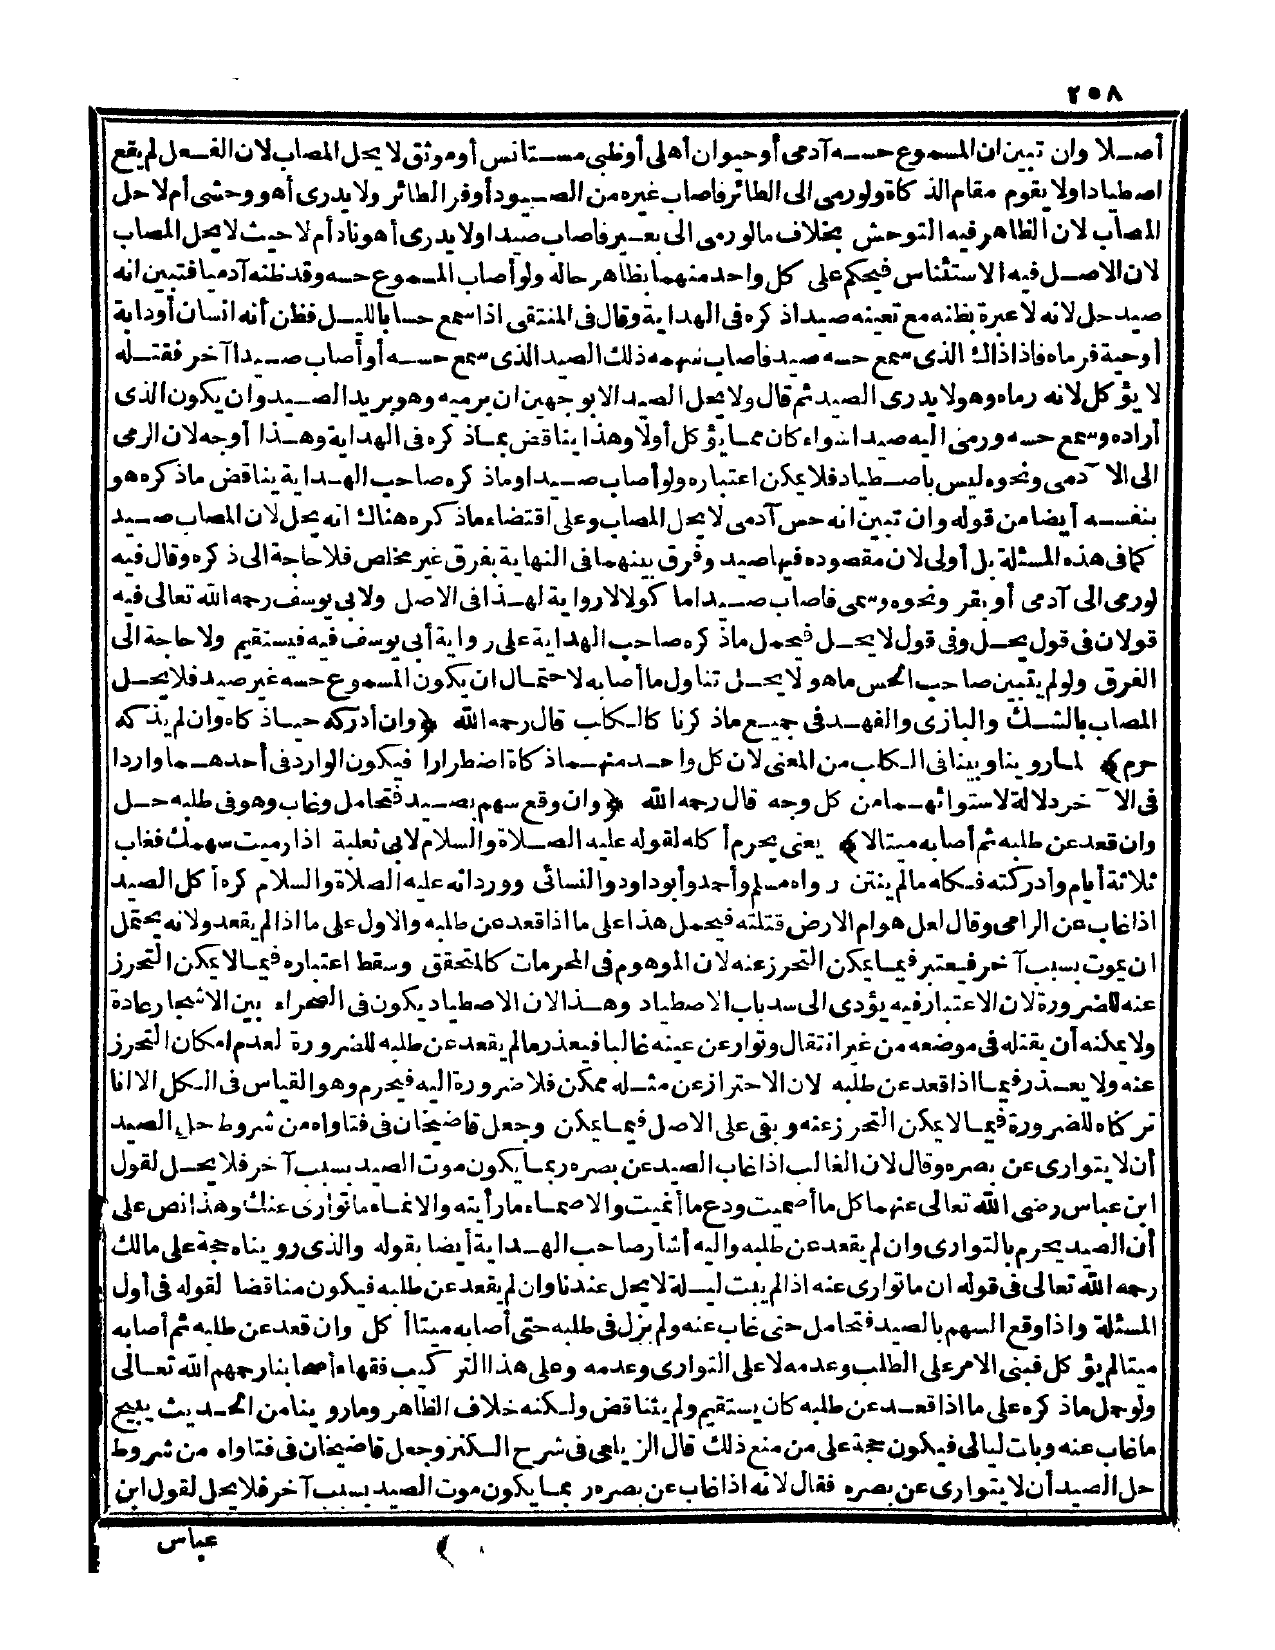 ٢٥٨
أصلا وان تبين ان المسموع حسه آدمى أو حيوان أهلى أو ظبى مستانس أو موثق لا يحل المصاب لان الفعل لم يقع
اصطيادا ولا يقوم مقام الذكاة ولو رمى الى الطائر فاصاب غيره من الصيود أو فر الطائر ولا يدرى أهو وحشى أم لا حل
المصاب لان الظاهر فيه التوحش بخلاف ما لو رمى الى بعير فاصاب صيدا ولا يدرى أهو ناد أم لا حيث لا يحل المصاب
لان الاصل فيه الاستئناس فيحكم على كل واحد منهما بظاهر حاله ولو أصاب المسموع حسه وقد ظنه آدميا فتبين انه
صيد حل لانه لا عبرة بظنه مع تعينه صيدا ذكره فى الهداية وقال فى المنتقى اذا سمع حسا بالليل فظن أنه انسان أو دابة
أو حية فرماه فاذا ذاك الذى سمع حسه صيد فاصاب سهمه ذلك الصيد الذى سمع حسه أو أصاب صيدا آخر فقتله
لا يؤكل لانه رماه وهو لا يدرى الصيد ثم قال ولا يحل الصيد الا بوجهين ان يرميه وهو يريد الصيد وان يكون الذى
أراده وسمع حسه ورمى اليه صيدا سواء كان مما يؤكل أو لا وهذا يناقض بما ذكره فى الهداية وهذا أوجه لان الرمى
الى الآدمى ونحوه ليس باصطياد فلا يمكن اعتباره ولو أصاب صيدا وما ذكره صاحب الهداية يناقض ما ذكره هو
بنفسه أيضا من قوله وان تبين انه حس آدمى لا يحل المصاب وعلى اقتضاء ما ذكره هناك انه يحل لان المصاب صيد
كما فى هذه المسئلة بل أولى لان مقصوده فيها صيد وفرق بينهما فى النهاية بفرق غير مخلص فلا حاجة الى ذكره وقال فيه
لو رمى الى آدمى أو بقر ونحوه وسمى فاصاب صيدا ما كولا لا رواية لهذا فى الاصل ولابى يوسف رحمه الله تعالى فيه
قولان فى قول يحل وفى قول لا يحل فيحمل ما ذكره صاحب الهداية على رواية أبى يوسف فيه فيستقيم ولا حاجة الى
الفرق ولو لم يتبين صاحب الحس ما هو لا يحل تناول ما أصابه لاحتمال ان يكون المسموع حسه غير صيد فلا يحل
المصاب بالشك والبازى والفهد فى جميع ما ذكرنا كالكلب قال رحمه الله ﴿وان أدركه حيا ذكاه وان لم يذكه
حرم﴾ لما روينا وبينا فى الكلب من المعنى لان كل واحد منهما ذكاة اضطرارا فيكون الوارد فى أحدهما واردا
فى الآخر دلالة لاستوائهما من كل وجه قال رحمه الله ﴿وان وقع سهم بصيد فتحامل وغاب وهو فى طلبه حل
وان قعد عن طلبه ثم أصابه ميتا لا﴾ يعنى يحرم أكله لقوله عليه الصلاة والسلام لابى ثعلبة اذا رميت سهمك فغاب
ثلاثة أيام وأدركته فكله ما لم ينتن رواه مسلم وأحمد وأبو داود والنسائى وورد انه عليه الصلاة والسلام كره أكل الصيد
اذا غاب عن الرامى وقال لعل هوام الارض قتلته فيحمل هذا على ما اذا قعد عن طلبه والاول على ما اذا لم يقعد ولانه يحتمل
ان يموت بسبب آخر فيعتبر فيما يمكن التحرز عنه لان الموهوم فى المحرمات كالمتحقق وسقط اعتباره فيما لا يمكن التحرز
عنه للضرورة لان الاعتبار فيه يؤدى الى سد باب الاصطياد وهذا لان الاصطياد يكون فى الصحراء بين الاشجار عادة
ولا يمكنه أن يقتله فى موضعه من غير انتقال وتوار عن عينه غالبا فيعذر ما لم يقعد عن طلبه للضرورة لعدم امكان التحرز
عنه ولا يعذر فيما اذا قعد عن طلبه لان الاحتراز عن مثله ممكن فلا ضرورة اليه فيحرم وهو القياس فى الكل الا انا
تركاه للضرورة فيما لا يمكن التحرز عنه وبقى على الاصل فيما يمكن وجعل قاضيخان فى فتاواه من شروط حل الصيد
أن لا يتوارى عن بصره وقال لان الغالب اذا غاب الصيد عن بصره ربما يكون موت الصيد بسبب آخر فلا يحل لقول
ابن عباس رضى الله تعالى عنهما كل ما أصميت ودع ما أغيت والاصماء ما رأيته والاغماء ما توارى عنك وهذا نص على
أن الصيد يحرم بالتوارى وان لم يقعد عن طلبه واليه أشار صاحب الهداية أيضا بقوله والذى رويناه حجة على مالك
رحمه الله تعالى فى قوله ان ما توارى عنه اذا لم يبت ليلة لا يحل عندنا وان لم يقعد عن طلبه فيكون مناقضا لقوله فى أول
المسئلة واذا وقع السهم بالصيد فتحامل حتى غاب عنه ولم يزل فى طلبه حتى أصابه ميتا أكل وان قعد عن طلبه ثم أصابه
ميتا لم يؤكل فبنى الامر على الطلب وعدمه لا على التوارى وعدمه وعلى هذا التركيب فقهاء أصحابنا رحمهم الله تعالى
ولو حمل ما ذكره على ما اذا قعد عن طلبه كان يستقيم ولم يتناقض ولكنه خلاف الظاهر وما روينا من الحديث يبيح
ما غاب عنه وبات ليالى فيكون حجة على من منع ذلك قال الزيلعى فى شرح الكنز وجعل قاضيخان فى فتاواه من شروط
حل الصيد أن لا يتوارى عن بصره فقال لانه اذا غاب عن بصره ربما يكون موت الصيد بسبب آخر فلا يحل لقول ابن
عباس